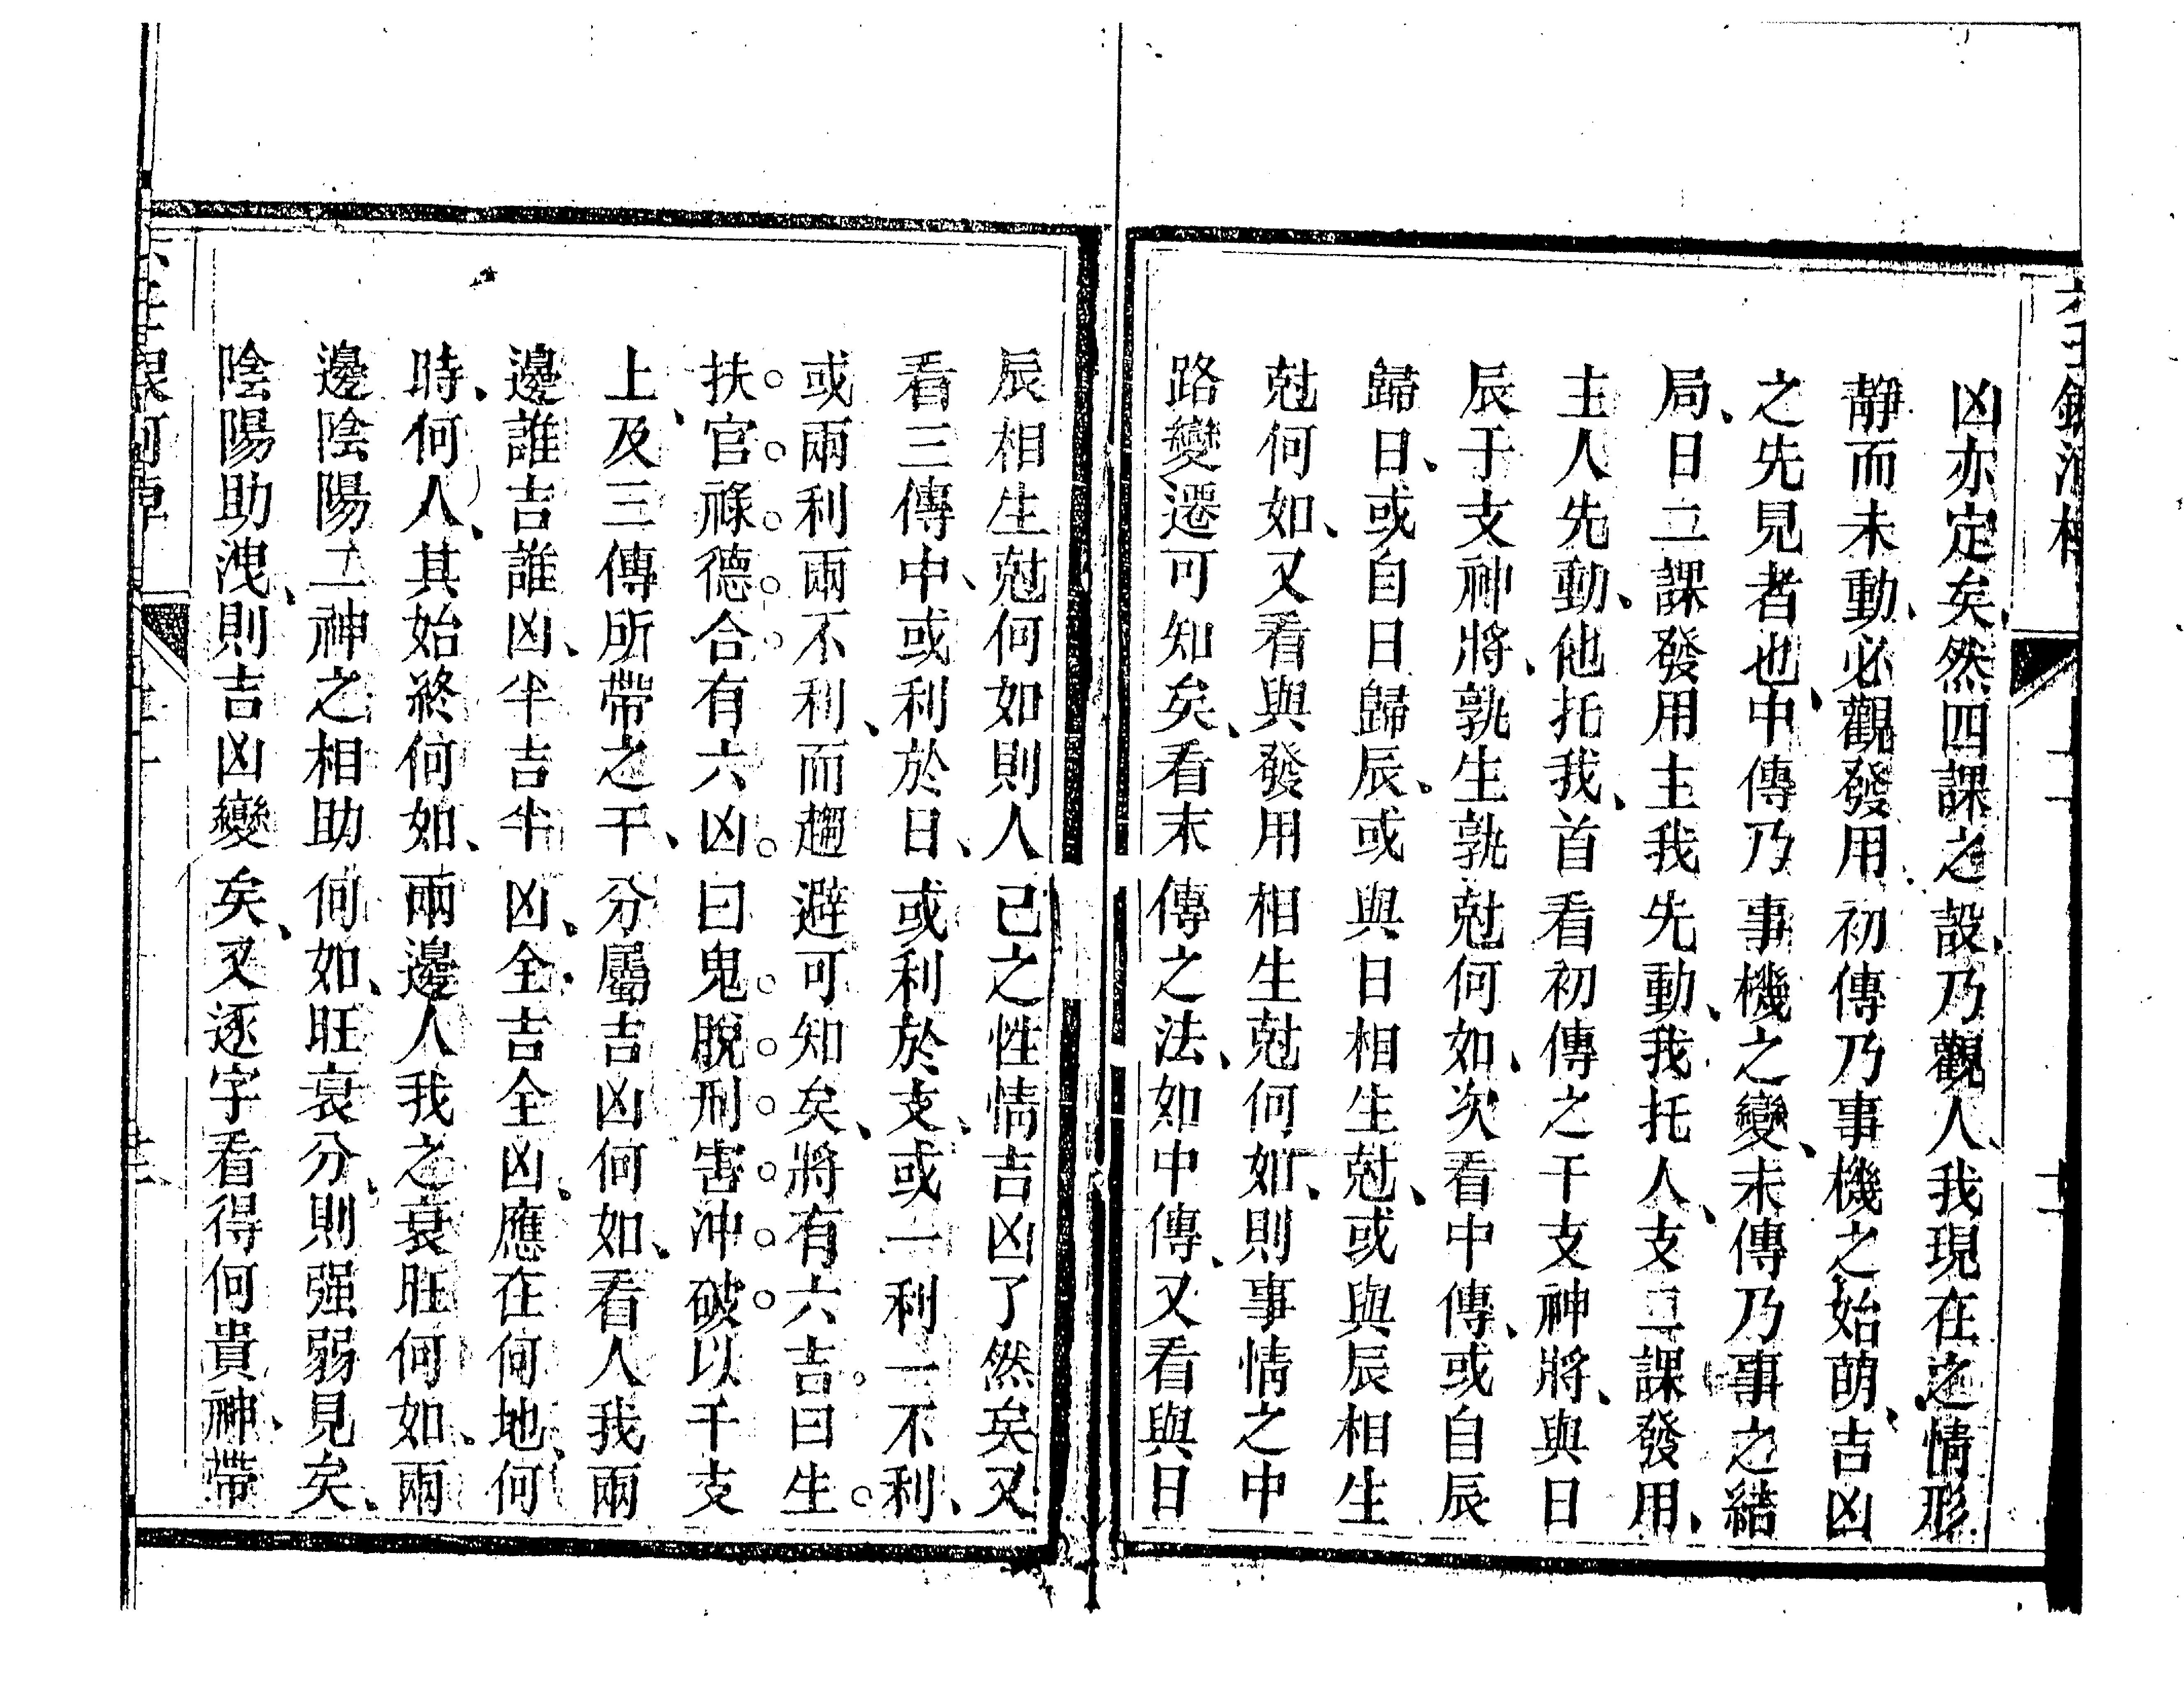 凶亦定矣、然四課之設、乃觀人、我現在之情形
靜而未動、必觀發用、初傳乃事機之始萌、吉凶
之先見者也、中傳乃事機之變、末傳乃事之結
局、日二課發用主我先動、我托人、支二課發用、
主人先動、他托我、首看初傳之干支神將、與日
辰于支神將、孰生孰尅何如、次看中傳、或自辰
歸日、或自日歸辰、或與日相生尅、或與辰相生
尅何如、又看與發用相生尅何如、則事情之中
路變遷可知矣、看末傳之法、如中傳、又看與日
辰相生尅何如則人己之性情吉凶了然矣又
看三傳中、或利於日、或利於支、或一利一不利、
或兩利兩不利、而趨避可知矣、將有六吉曰生
扶官祿德合有六凶曰鬼脫刑害沖破以干支
上、及三傳所帶之干、分屬吉凶何如、看人我兩
邊誰吉誰凶、半吉半凶、全吉全凶、應在何地、何
時、何人、其始終何如、兩邊人我之衰旺何如、兩
邊陰陽二神之相助何如、旺衰分、則强弱見矣、
陰陽助洩、則吉凶變矣、又逐字看得何貴神、帶